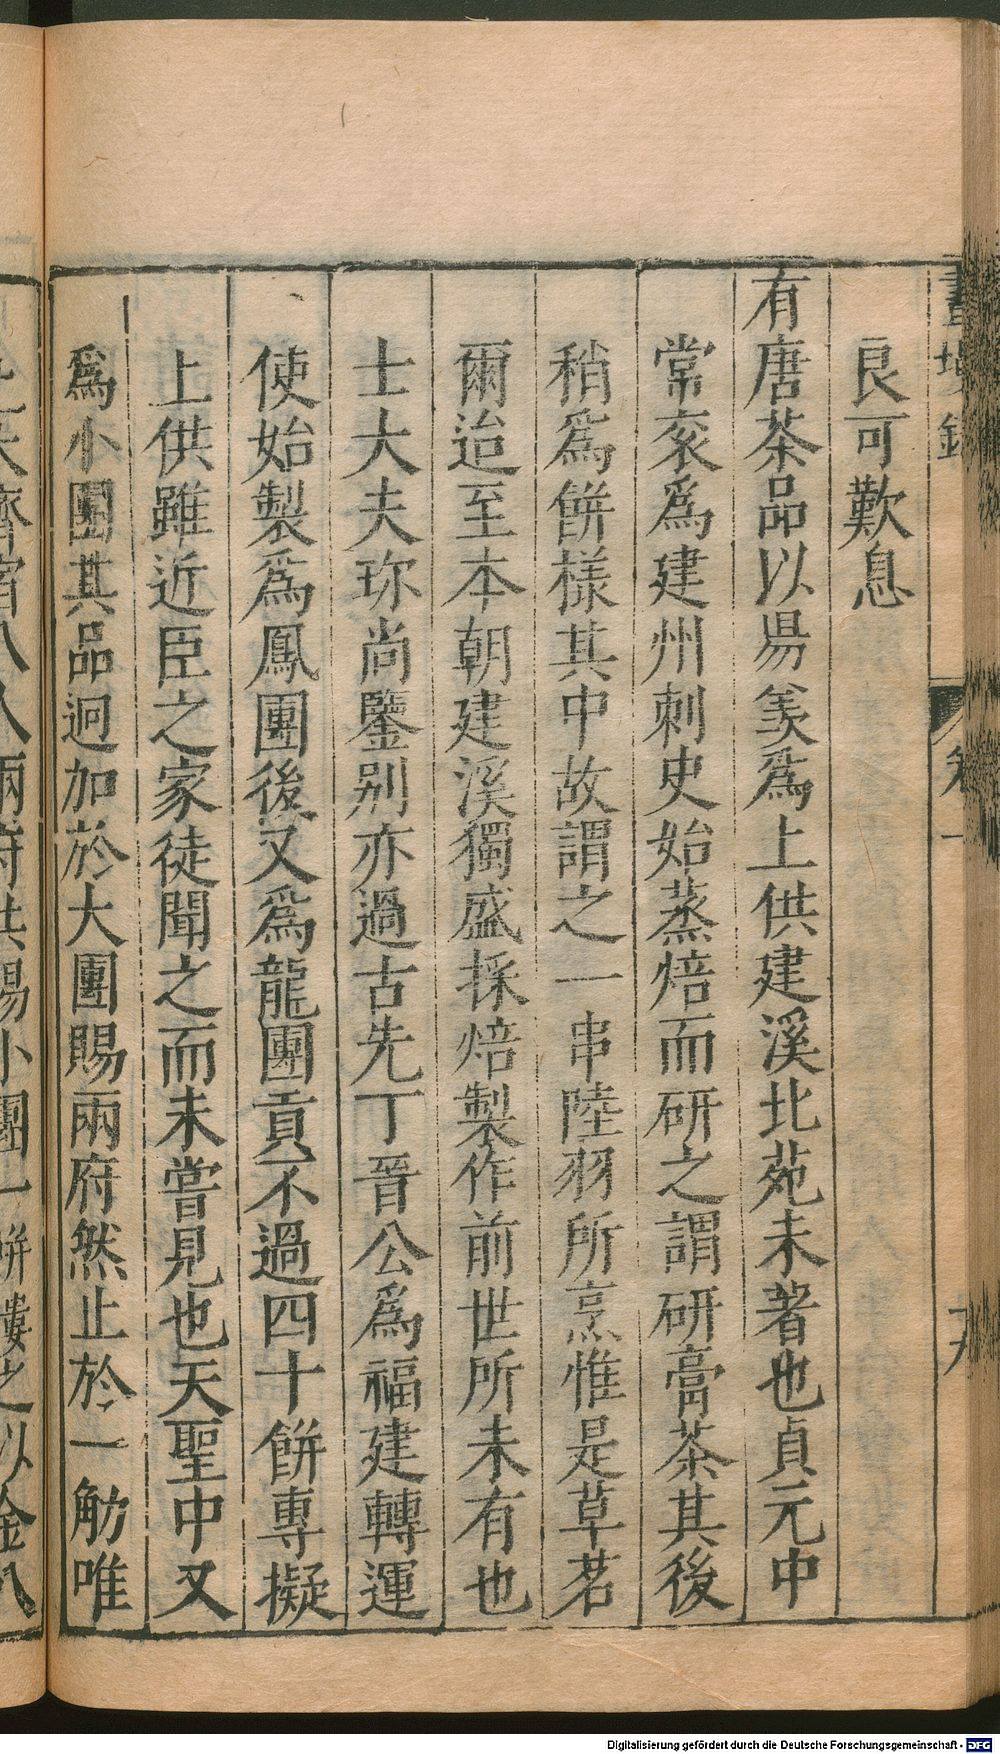 畫墁錄
卷一
良可歎息
有唐茶品以昜羡爲上供建溪北苑未著也貞元中
常衮爲建州刺史始蒸焙而研之謂研膏茶其後
稍爲餅樣其中故謂之一串陸羽所烹惟是草茗
爾迨至本朝建溪獨盛採焙製作前世所未有也
士大夫珎尚鑒别亦過古先丁晉公爲福建轉運
使始製爲鳳團後又爲龍團貢不過四十餅專擬
上供雖近臣之家徒聞之而未嘗見也天聖中又
爲小團其品迥加於大團賜兩府然止於一觔唯
Digitalisierung gefördert durch die Deutsche Forschungsgemeinschaft - DFG